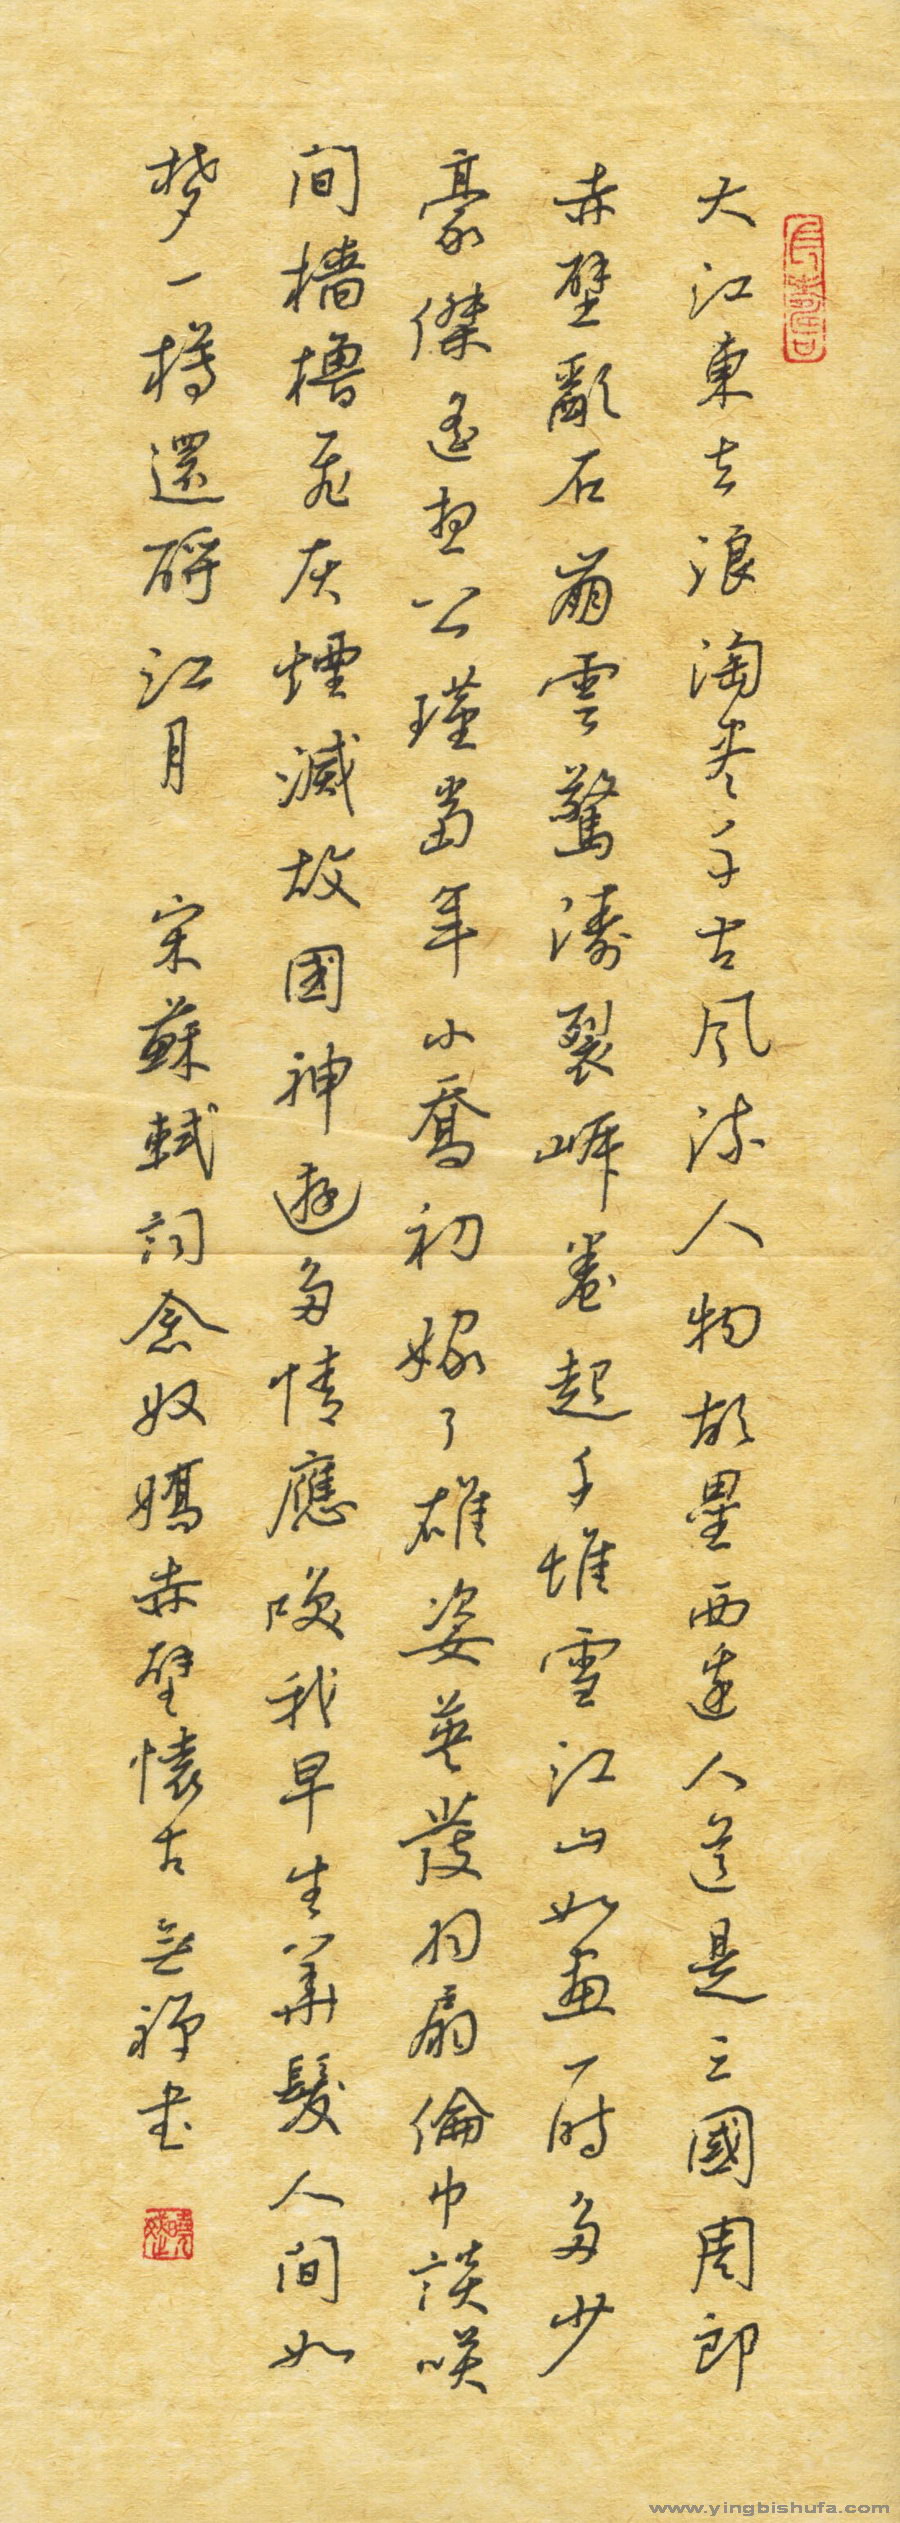 大江東去浪淘盡千古風流人物故壘西邊人道是三國周郎
赤壁亂石崩雲驚濤裂岸卷起千堆雪江山如畫一時多少
豪傑遙想公瑾當年小喬初嫁了雄姿英發羽扇倫巾談笑
間檣櫓飛灰煙滅故國神遊多情應笑我早生華髮人間如
梦一樽還酹江月 宋蘇軾詞念奴嬌赤壁懷古 無禪書
www.yingbishufa.com